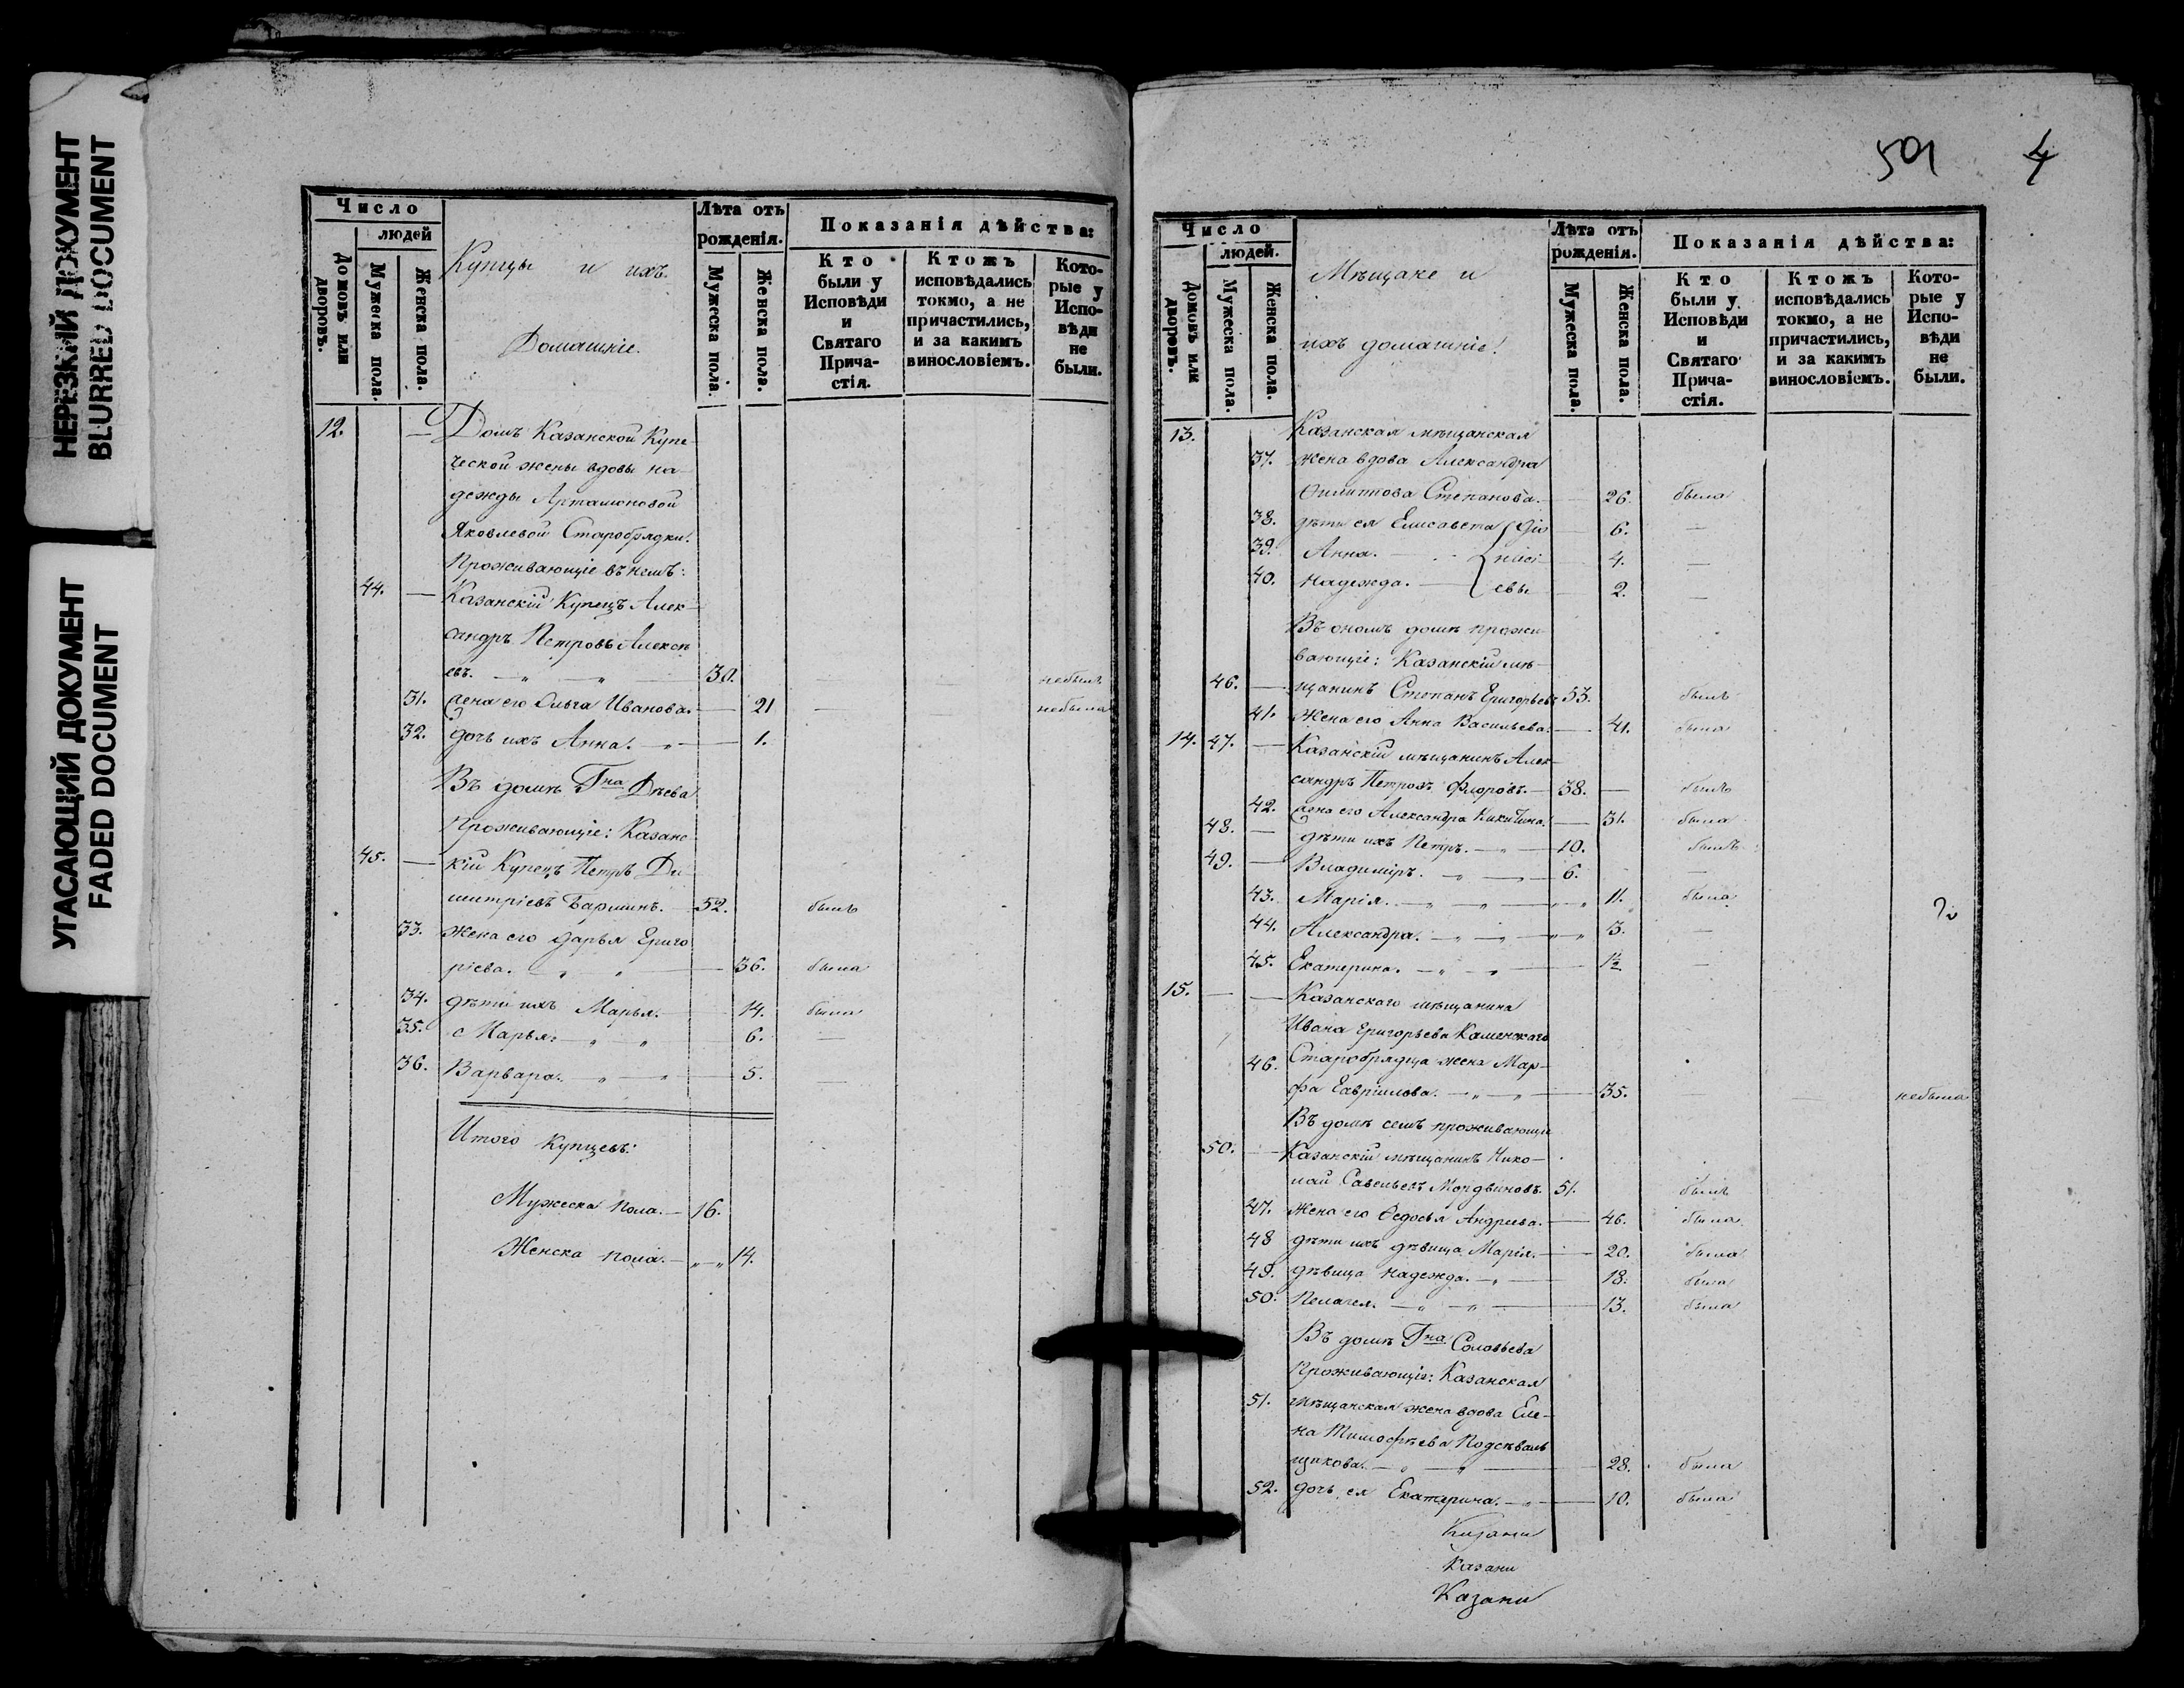 НЕРЕЗКИЙ ДОКУМЕНТ
BLURRED DOCUMENT
УГАСАЮЩИЙ ДОКУМЕНТ
FADED DOCUMENT
Число
людей
Домовъ или дворовъ.
Мужеска пола.
Женска пола.
Купцы и ихъ
Домашніе.
Лѣта отъ рожденія.
Мужеска пола.
Женска пола.
Показанія дѣйства:
Кто были у Исповѣди и Святаго Прича-стія.
Ктожъ исповѣдались токмо, а не причастились, и за какимъ винословіемъ.
Кото-рые у Испо-вѣди не были.
12. Домъ Казанской Купе
ческой жены вдовы На
дежды Артамоновой
Яковлевой Старобрядки.
Проживающіе въ немъ:
44. — Казанскій Купецъ Алек
сандръ Петровъ Алексѣ
евъ. — 30. небылъ
31. жена его Ольга Иванова. — 21 небыла
32. дочь ихъ Анна. — 1.
Въ домѣ Гна Дѣева
Проживающіе: Казанс
45. — кій Купецъ Петръ Ди
митріевъ 52. былъ
33. жена его Дарья Григо
ріева. — 36. была
34. дѣти ихъ Марья. 14. была
35. 6. —
36. Варвара. — 5. —
Итого Купцевъ:
Мужеска пола. — 16.
Женска пола. — 14.
501 4
Число
людей.
Домовъ или дворовъ.
Мужеска пола.
Женска пола.
Мѣщане и
ихъ домашніе.
Лѣта отъ рожденія.
Мужеска пола.
Женска пола.
Показанія дѣйства:
Кто были у Исповѣди и Святаго Прича-стія.
Ктожъ исповѣдались токмо, а не причастились, и за какимъ винословіемъ.
Кото-рые у Испо-вѣди не были.
13. Казанская мѣщанская
37. жена вдова Александра
Филиппова Степанова. — 26. была
38. дѣти ея Елисавета Діо 6. —
39. Анна. нисі 4. —
40. Надежда. евы 2. —
Въ ономъ домѣ прожи
вающіе: Казанскій мѣ
46. — щанинъ Степанъ Григорьевъ 53. былъ
41. Жена его Анна Васильева. — 41. была
14. 47. — Казанскій мѣщанинъ Алек
сандръ Петровъ Флоровъ. — 38. — былъ
42. жена его Александра Никитина. — 31. была
48. — дѣти ихъ Петръ. — 10. былъ
49. — Владиміръ. — 6. —
43. Марія. — 11. была
44. Александра. — 3. —
45. Екатерина. — 1½ —
15. — Казанскаго мѣщанина
Ивана Григорьева Каменскаго
46. Старобрядца жена Мар
фа Гавріилова. — 35. — небыла
Въ домѣ семъ проживающіе
50. — Казанскій мѣщанинъ Нико
лай Савельевъ Мордвиновъ. 51. былъ
47. Жена его Ѳедосья Андреева. — 46. была
48 дѣти ихъ дѣвица Марія. — 20. была
49. дѣвица Надежда. — 18. была
50. Пелагея. — 13. была
Въ домѣ Гна Соловьева
Проживающіе: Казанская
51. мѣщанская жена вдова Еле
на Тимофѣева Подсѣваль
щикова. — 28. была
52. дочь ея Екатерина. — 10. была
Казани
Казани
Казани